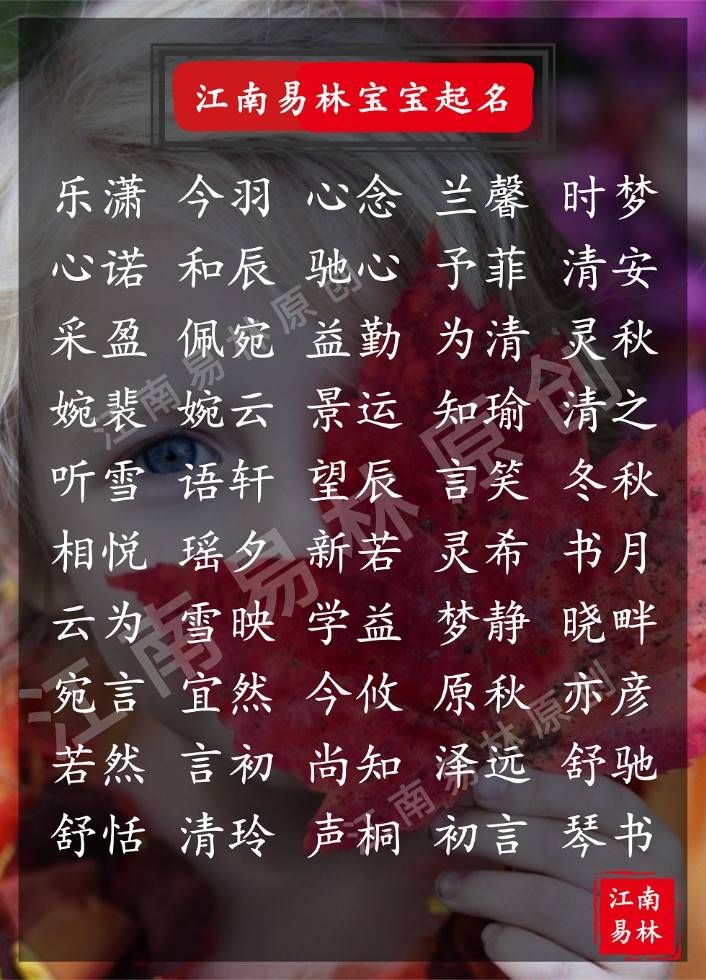 江南易林宝宝起名
乐潇 今羽 心念 兰馨 时梦
心诺 和辰 驰心 予菲 清安
采盈 佩宛 益勤 为清 灵秋
婉裴 婉云 景运 知瑜 清之
听雪 语轩 望辰 言笑 冬秋
相悦 瑶夕 新若 灵希 书月
云为 雪映 学益 梦静 晓畔
宛言 宜然 今攸 原秋 亦彦
若然 言初 尚知 泽远 舒驰
舒恬 清玲 声桐 初言 琴书
江南易林原创
江南易林原创
江南易林原创
江南
易林